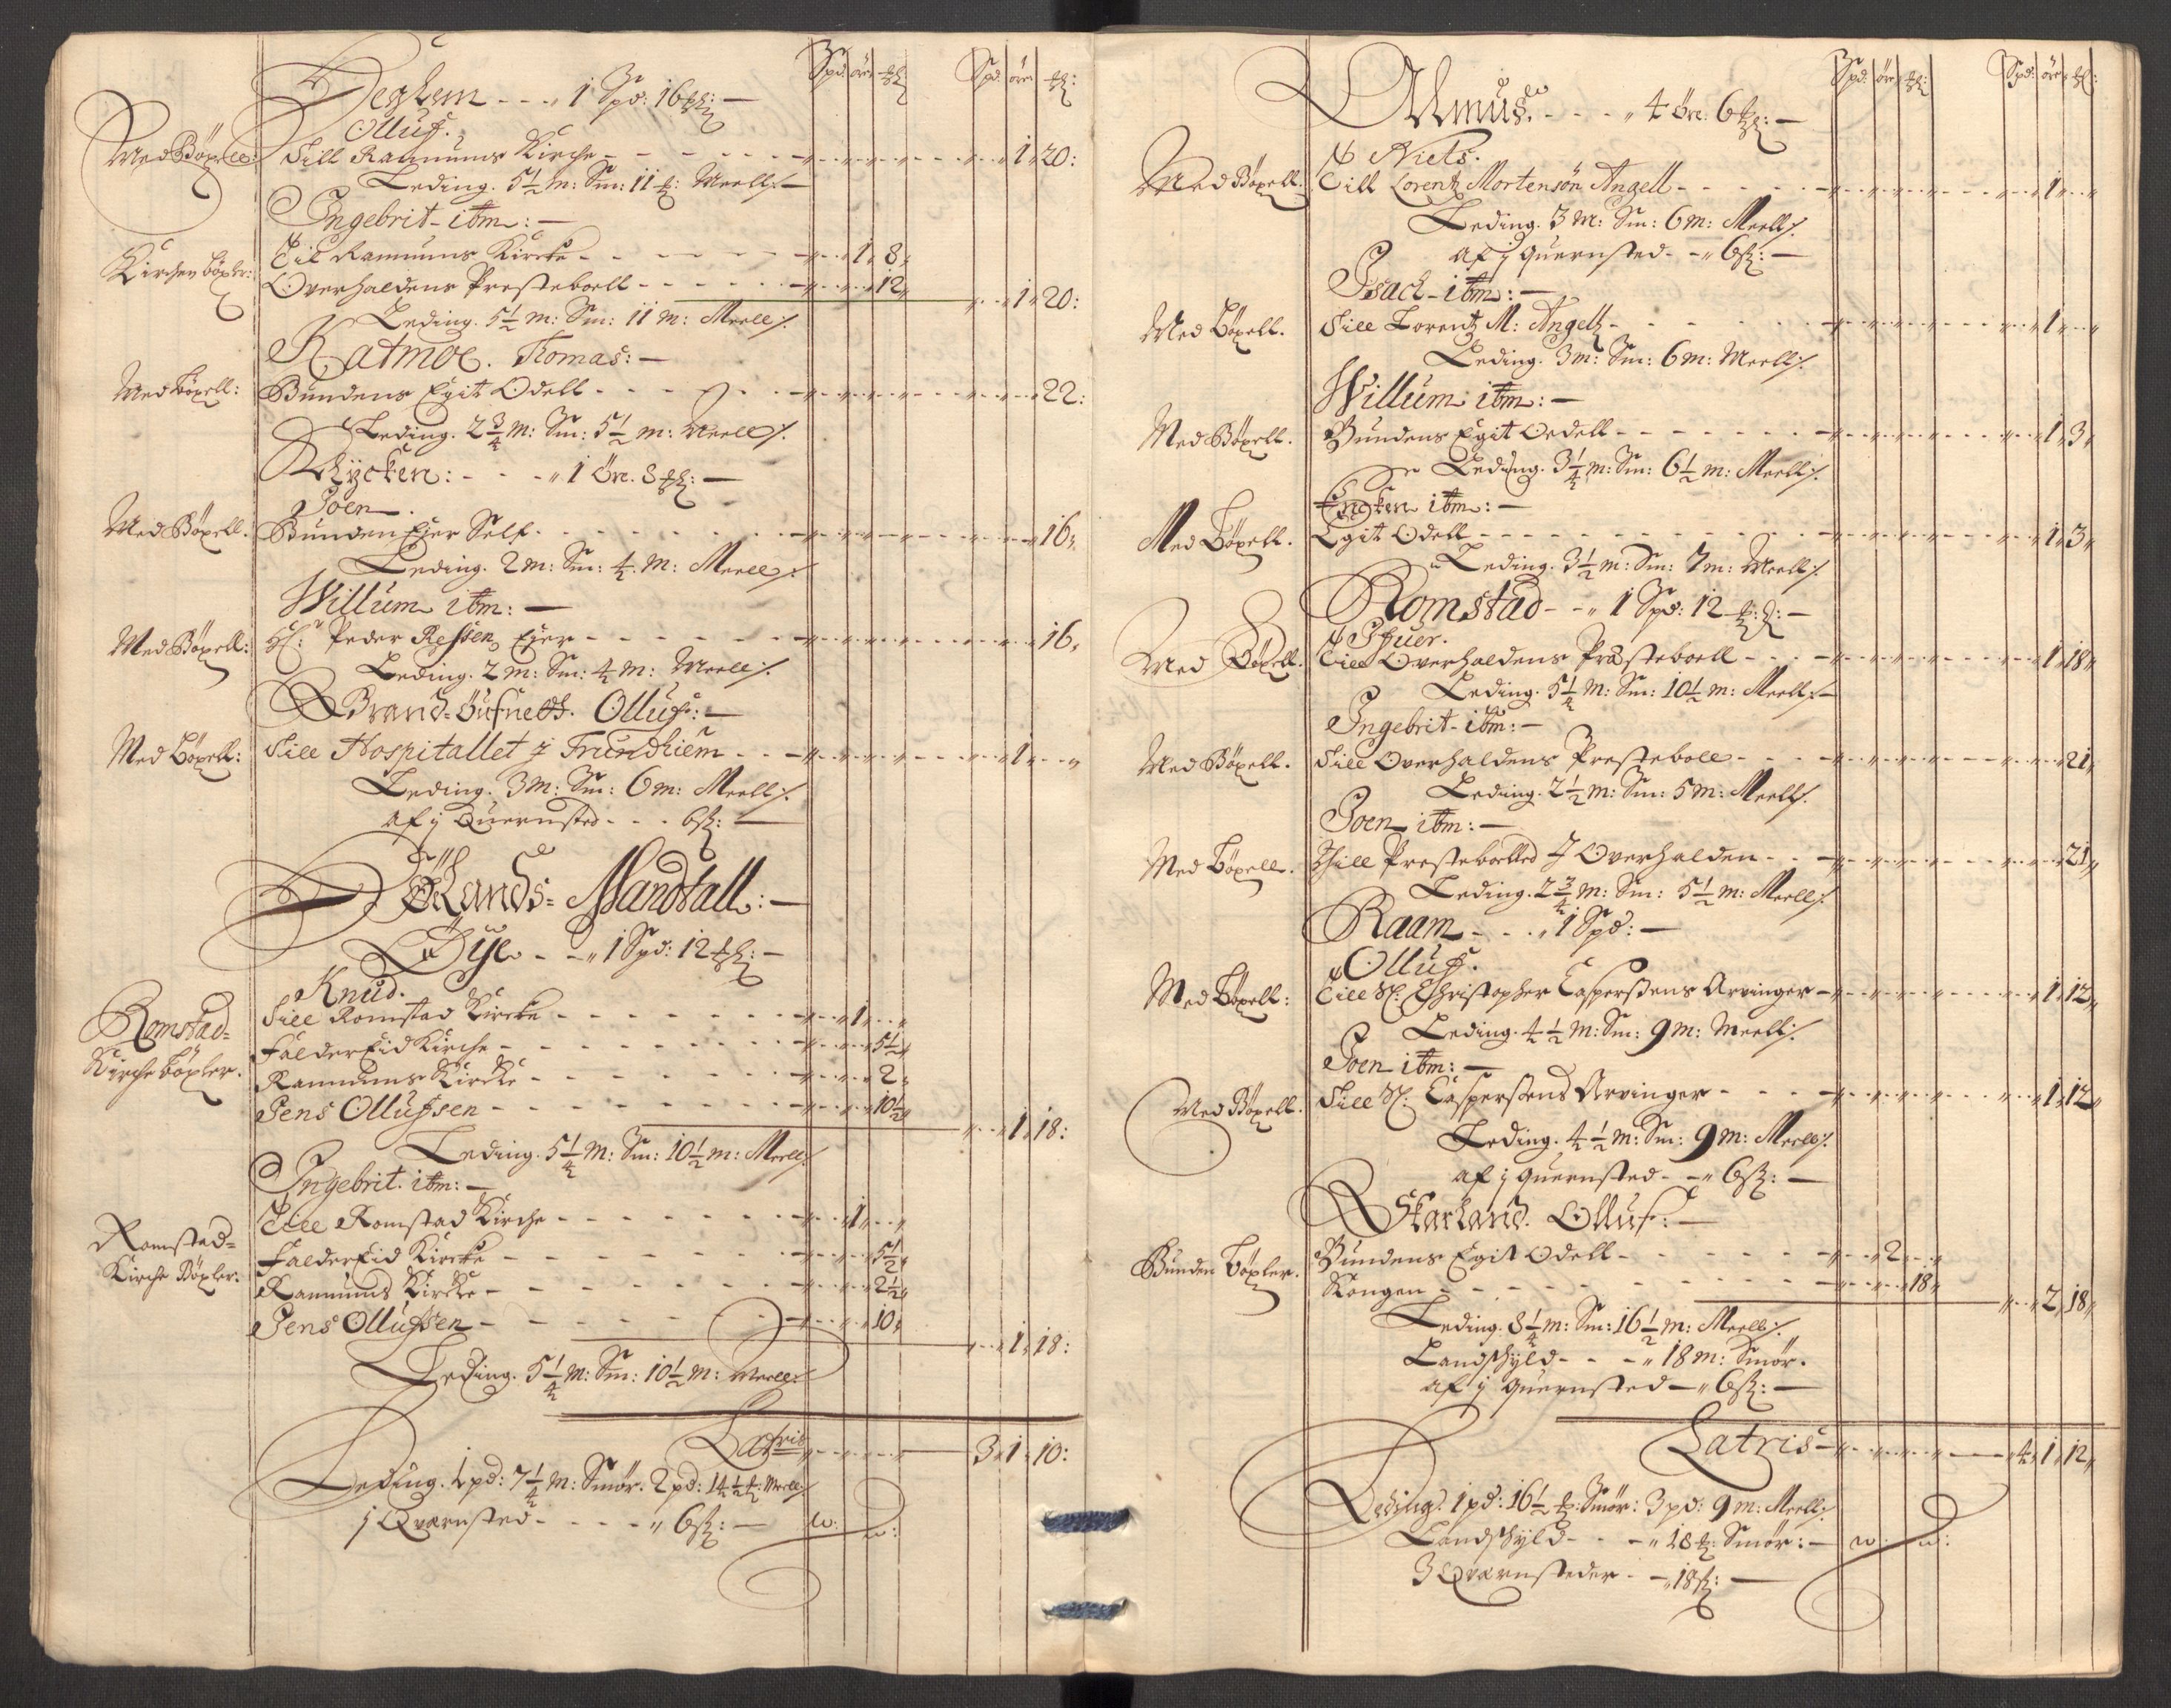 Spd: öre ℔: Spd: öre ℔:
Deglem - - - „ 1 Spd: 16 ℔: —
Olluf.
Med Böxell: Till Ranumms Kirche - - - - - 1 „ 20:
Leding. 5½ m: Sm: 11 ℔: Meell: —
Ingebrit - itm: —
Til Ranumms Kircke - - - - - - 1 „ 8 „
Kirchen böxler: Overhaldens Presteboell - - - - - - 12 „
1 „ 20:
Leding. 5½ m: Sm: 11 m: Meell:
Katmoe. Thomas: —
Med böxell: Bundens Egit Odell - - - - - 22:
Leding. 2¾ m: Sm: 5½ m: Meell:
Rÿcken: - - - „ 1 öre. 8 ℔: —
Joen.
Med Böxell. Bunden Ejer Self - - - - - 16 „
Leding. 2 m: Sm: 4 m: Meell:
Willum itm: —
Med Böxell: Hl: Peder Ressen Ejer - - - - - 16 „
Leding. 2 m: Sm: 4 m: Meell:
Brand- Olluf: —
Med Böxell: Till Hospitallet j Trundhiem - - - 1 „ - - „
Leding. 3 m: Sm: 6 m: Meell:
af j Quernsted - - - 6 ß: —
Mandtall: —
Öÿe - - „ 1 Spd: 12 ℔: —
Knud.
Romstad- Till Romstad Kircke - - - - - - 1 „ - -
Kirche böxler. FalderEid Kirche - - - - - - 5½ „
Ranumms Kircke - - - - - - 2 „
Jens Ollufsen - - - - - - 10½ „
1 „ 18:
Leding. 5¼ m: Sm: 10½ m: Meell:
Ingebrit. itm: —
Romstad- Till Romstad Kirche - - - - - - 1 „ - -
Kirche Böxler. FalderEid Kircke - - - - - - 5½ „
Ranumms Kircke - - - - - - 2½ „
Jens Ollufsen - - - - - - 10 „
1 „ 18:
Leding. 5¼ m: Sm: 10½ m: Meell:
Latris - - - 3 „ 1 „ 10:
Leding. 1 pd: 7¼ m: Smör. 2 pd: 14½ ℔: Meell:
j Qvernsted - - - - „ 6 ß: —
Spd: öre ℔: Spd: öre ℔:
Almus. - - - „ 4 öre. 6 ℔: —
Niels.
Med Böxell. Till Lorentz Mortensön Angell - - - - - 1 „ - -
Leding. 3 m: Sm: 6 m: Meell:
af j quernsted - - „ 6 ß: —
Isach - itm: —
Med böxell. Till Lorentz M: Angell - - - - - 1 „ - -
Leding. 3 m: Sm: 6 m: Meell:
Willum itm: —
Med Böxell. Bundens Egit Oedell - - - - - - 1 „ 3 „
Leding. 3¼ m: Sm: 6½ m: Meell:
Encken itm: —
Med Böxell. Egit Odell - - - - - - 1 „ 3 „
Leding. 3½ m: Sm: 7 m: Meell:
Romstad - - „ 1 Spd: 12 ℔: —
Ifuer.
Med Böxell. Till Overhaldens Præsteboell - - - - 1 „ 18 „
Leding. 5¼ m: Sm: 10½ m: Meell: —
Ingebrit - itm: —
Med Böxell. Till Overhaldens Presteboll - - - - 21 „
Leding. 2½ m: Sm: 5 m: Meell:
Joen itm: —
Med böxell. Till Presteboelled J Overhalden - - - 21 „
Leding. 2¾ m: Sm: 5½ m: Meell:
Raam - - - „ 1 Spd: —
Olluf.
Med böxell: Till Sl: Christopher Caspersens Arvinger - 1 „ 12 „
Leding. 4½ m: Sm: 9 m: Meell:
Joen itm: —
Med Böxell. Till Sl: Caspersens Arvinger - - - - 1 „ 12 „
Leding. 4½ m: Sm: 9 m: Meell:
af j quernsted - - „ 6 ß: —
Skarland. Olluf: —
Bunden böxler. Bundens Egit Odell - - - - - 2 „ - -
Kongen - - - - - - 18 „
2 „ 18 „
Leding. 8¼ m: Sm: 16½ m: Meell:
Landschyld - - - „ 18 m: Smör.
af j quernsted - „ 6 ß: —
Latris - - - 4 „ 1 „ 12 „
Leding. 1 pd: 16½ ℔: Smör: 3 pd: 9 m: Meell:
Landschyld - - - „ 18 ℔: Smör: —
3 Qvernsteder - - „ 18 ß: —